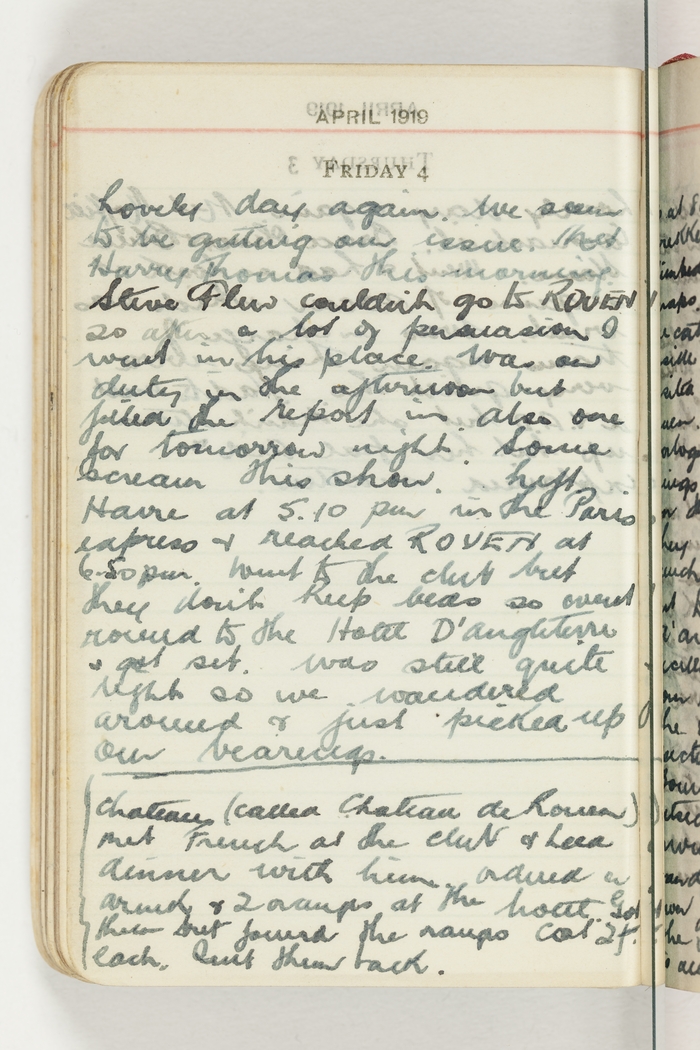 APRIL 1919
FRIDAY 4
Lovely day again. We seem
to be getting our issue. Met
Harry Thomas this morning
Steve Flew couldn't go to ROUEN
so after a lot of persuasion I
went in his place. Was on
duty in the afternoon but
filled the report in. also one
for tomorrow night. Some
scream this show. Left
Havre at 5.10 pm in the Paris
express & reached ROUEN at
6.50 pm. Went to the club but
they don't keep beds so went
round to the Hotel D'Angleterre
& got set. Was still quite
light so we wandered
around & just picked up
our bearings.
Chateau (called Chateau de Rouen)
met French at the club & had
dinner with him. ordered a
& 2 oranges at the hotel. Got
them but found the oranges cost 2f.
each. Sent them back.